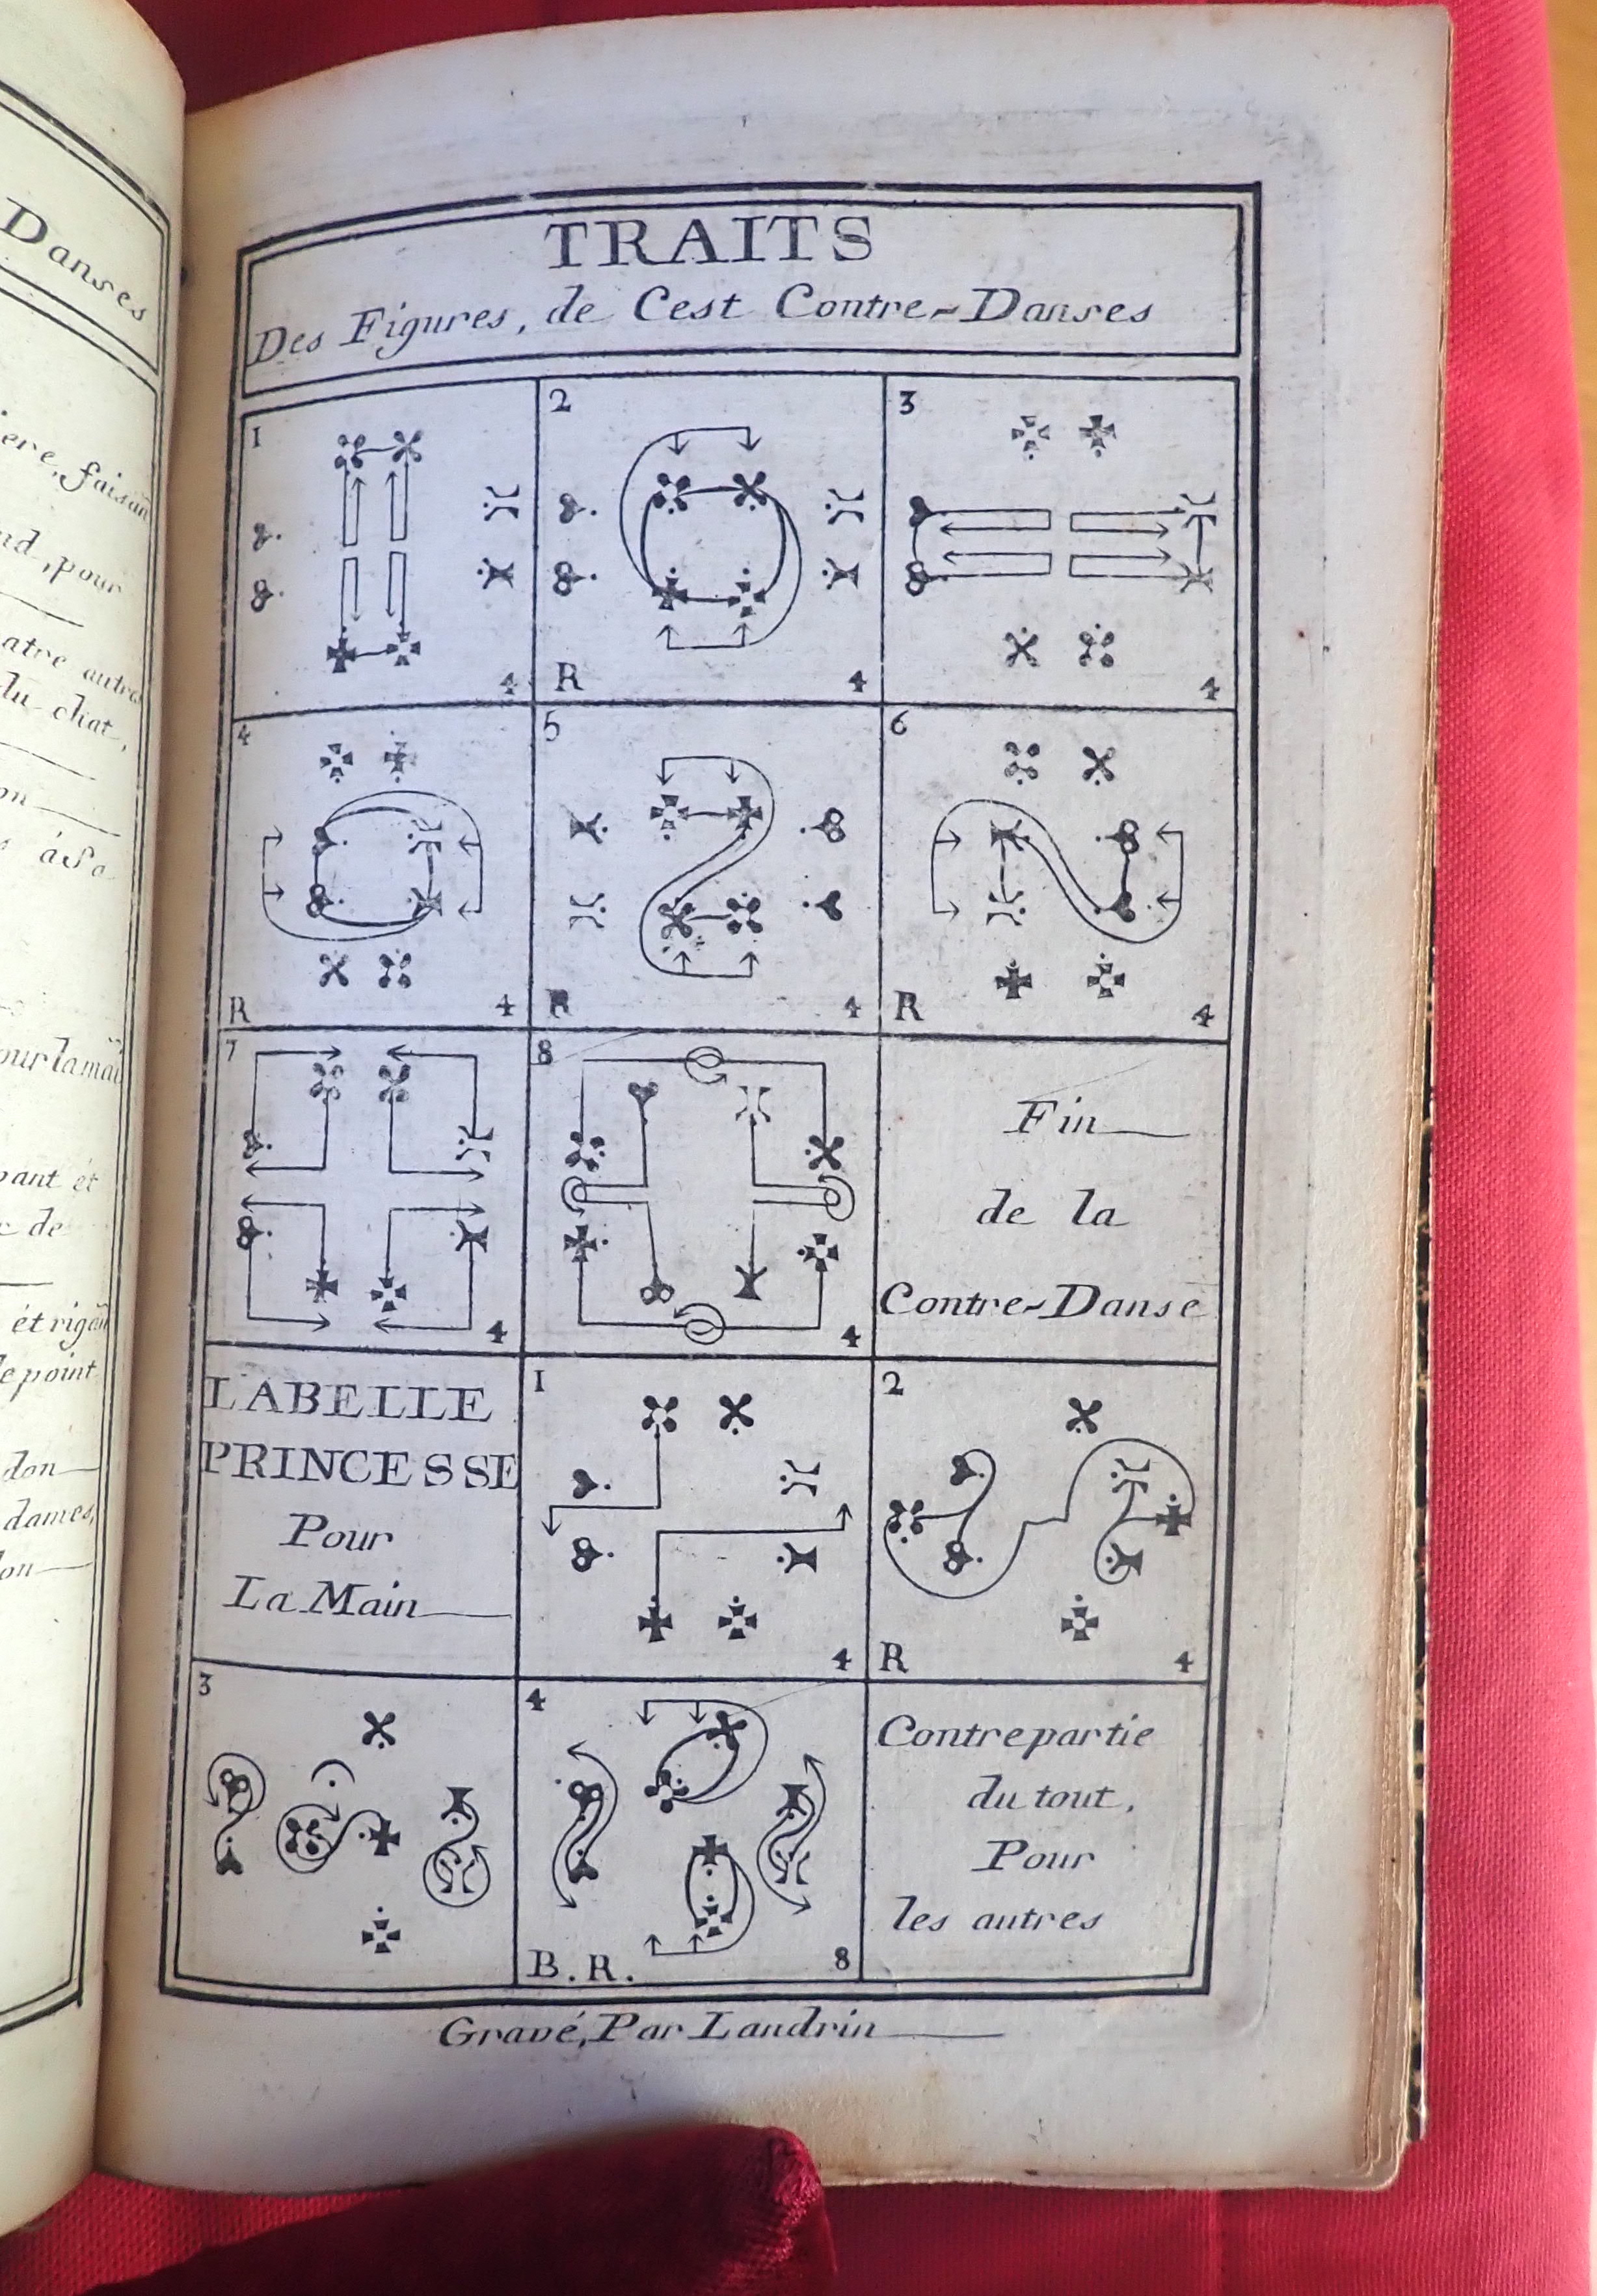 Danses
faisan
nd, pour
atre autre
du chat,
on
pour la mai
pant et
c de
et rigan
le point
don
dames,
TRAITS
Des Figures, de Cest Contre-Danses
1
4
2
R
4
3
4
4
R
4
5
R
4
6
R
4
7
4
8
4
Fin
de la
Contre-Danse
LABELLE
PRINCESSE
Pour
La Main
1
4
2
R
4
3
4
B.R.
8
Contrepartie
du tout,
Pour
les autres
Gravé, Par Landrin